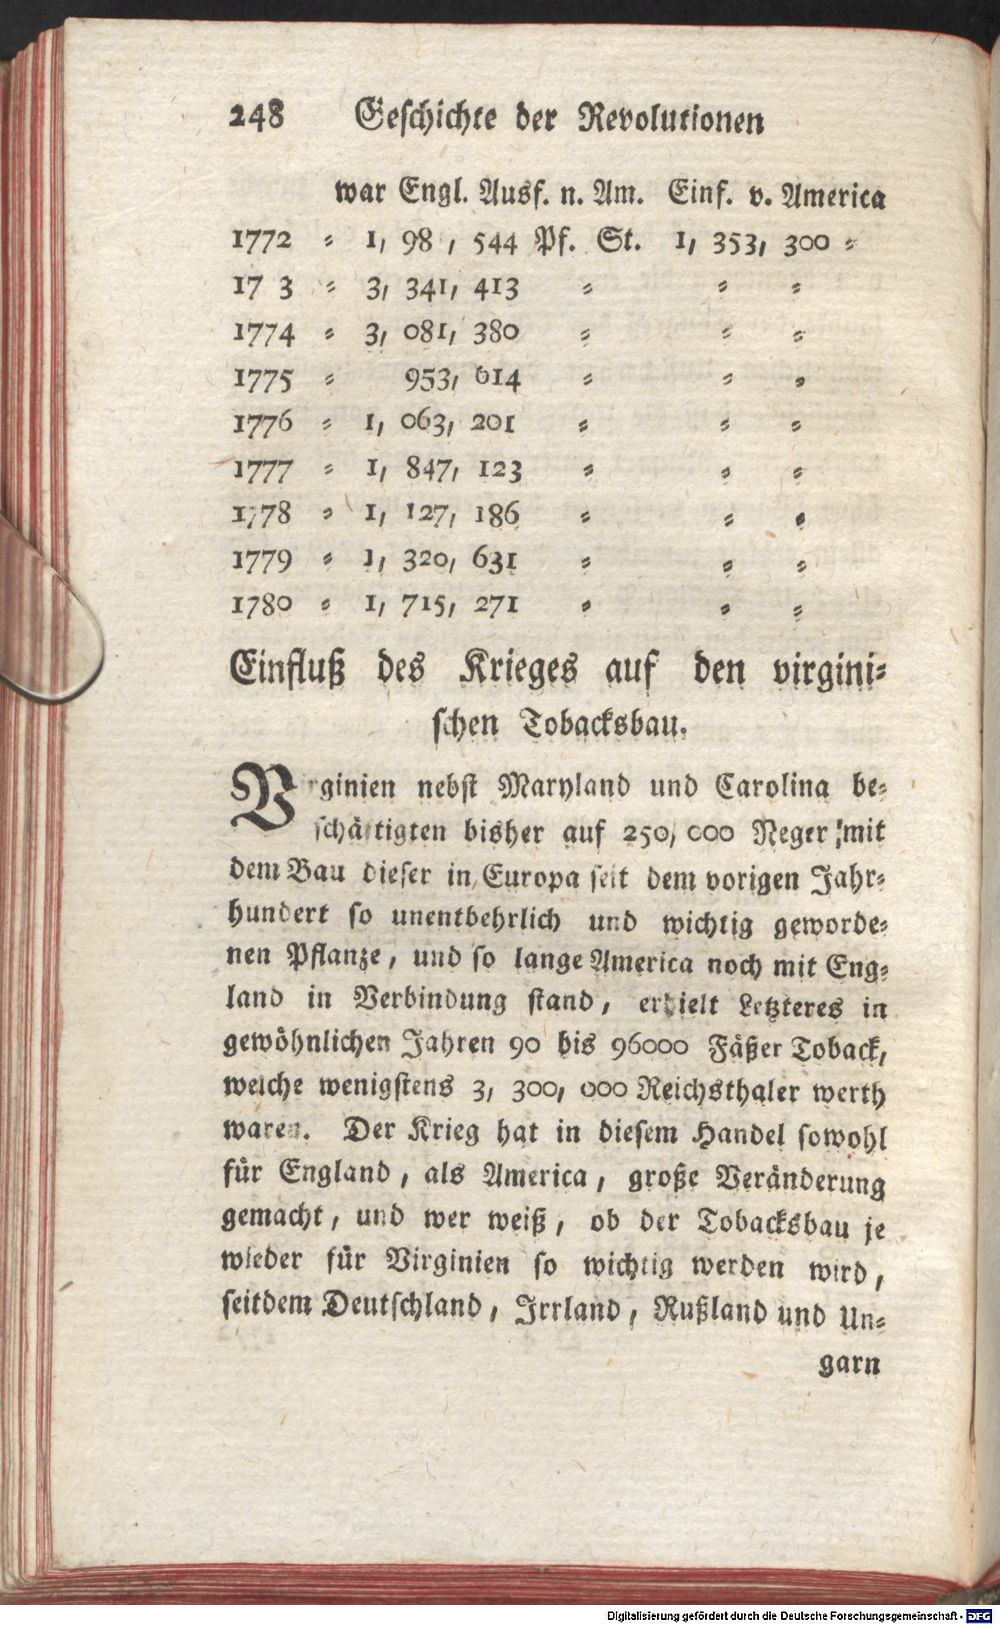 248 Geschichte der Revolutionen
war Engl. Ausf. n. Am. Einf. v. America
1772 ⸗ 1, 98 , 544 Pf. St. 1, 353, 300 ⸗
17 3 ⸗ 3, 341, 413 ⸗ ⸗ ⸗
1774 ⸗ 3, 081, 380 ⸗ ⸗ ⸗
1775 ⸗ 953, 614 ⸗ ⸗ ⸗
1776 ⸗ 1, 063, 201 ⸗ ⸗ ⸗
1777 ⸗ 1, 847, 123 ⸗ ⸗ ⸗
1778 ⸗ 1, 127, 186 ⸗ ⸗ ⸗
1779 ⸗ 1, 320, 631 ⸗ ⸗ ⸗
1780 ⸗ 1, 715, 271 ⸗ ⸗ ⸗
Einfluß des Krieges auf den virgini⸗
schen Tobacksbau.
Virginien nebst Maryland und Carolina be⸗
schäftigten bisher auf 250, 000 Neger mit
dem Bau dieser in Europa seit dem vorigen Jahr⸗
hundert so unentbehrlich und wichtig geworde⸗
nen Pflanze, und so lange America noch mit Eng⸗
land in Verbindung stand, erhielt Letzteres in
gewöhnlichen Jahren 90 bis 96000 Fäßer Toback,
welche wenigstens 3, 300, 000 Reichsthaler werth
waren. Der Krieg hat in diesem Handel sowohl
für England, als America, große Veränderung
gemacht, und wer weiß, ob der Tobacksbau je
wieder für Virginien so wichtig werden wird,
seitdem Deutschland, Irrland, Rußland und Un⸗
garn
Digitalisierung gefördert durch die Deutsche Forschungsgemeinschaft - DFG